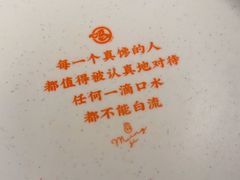 每一个真馋的人
都值得被认真地对待
任何一滴口水
都不能白流